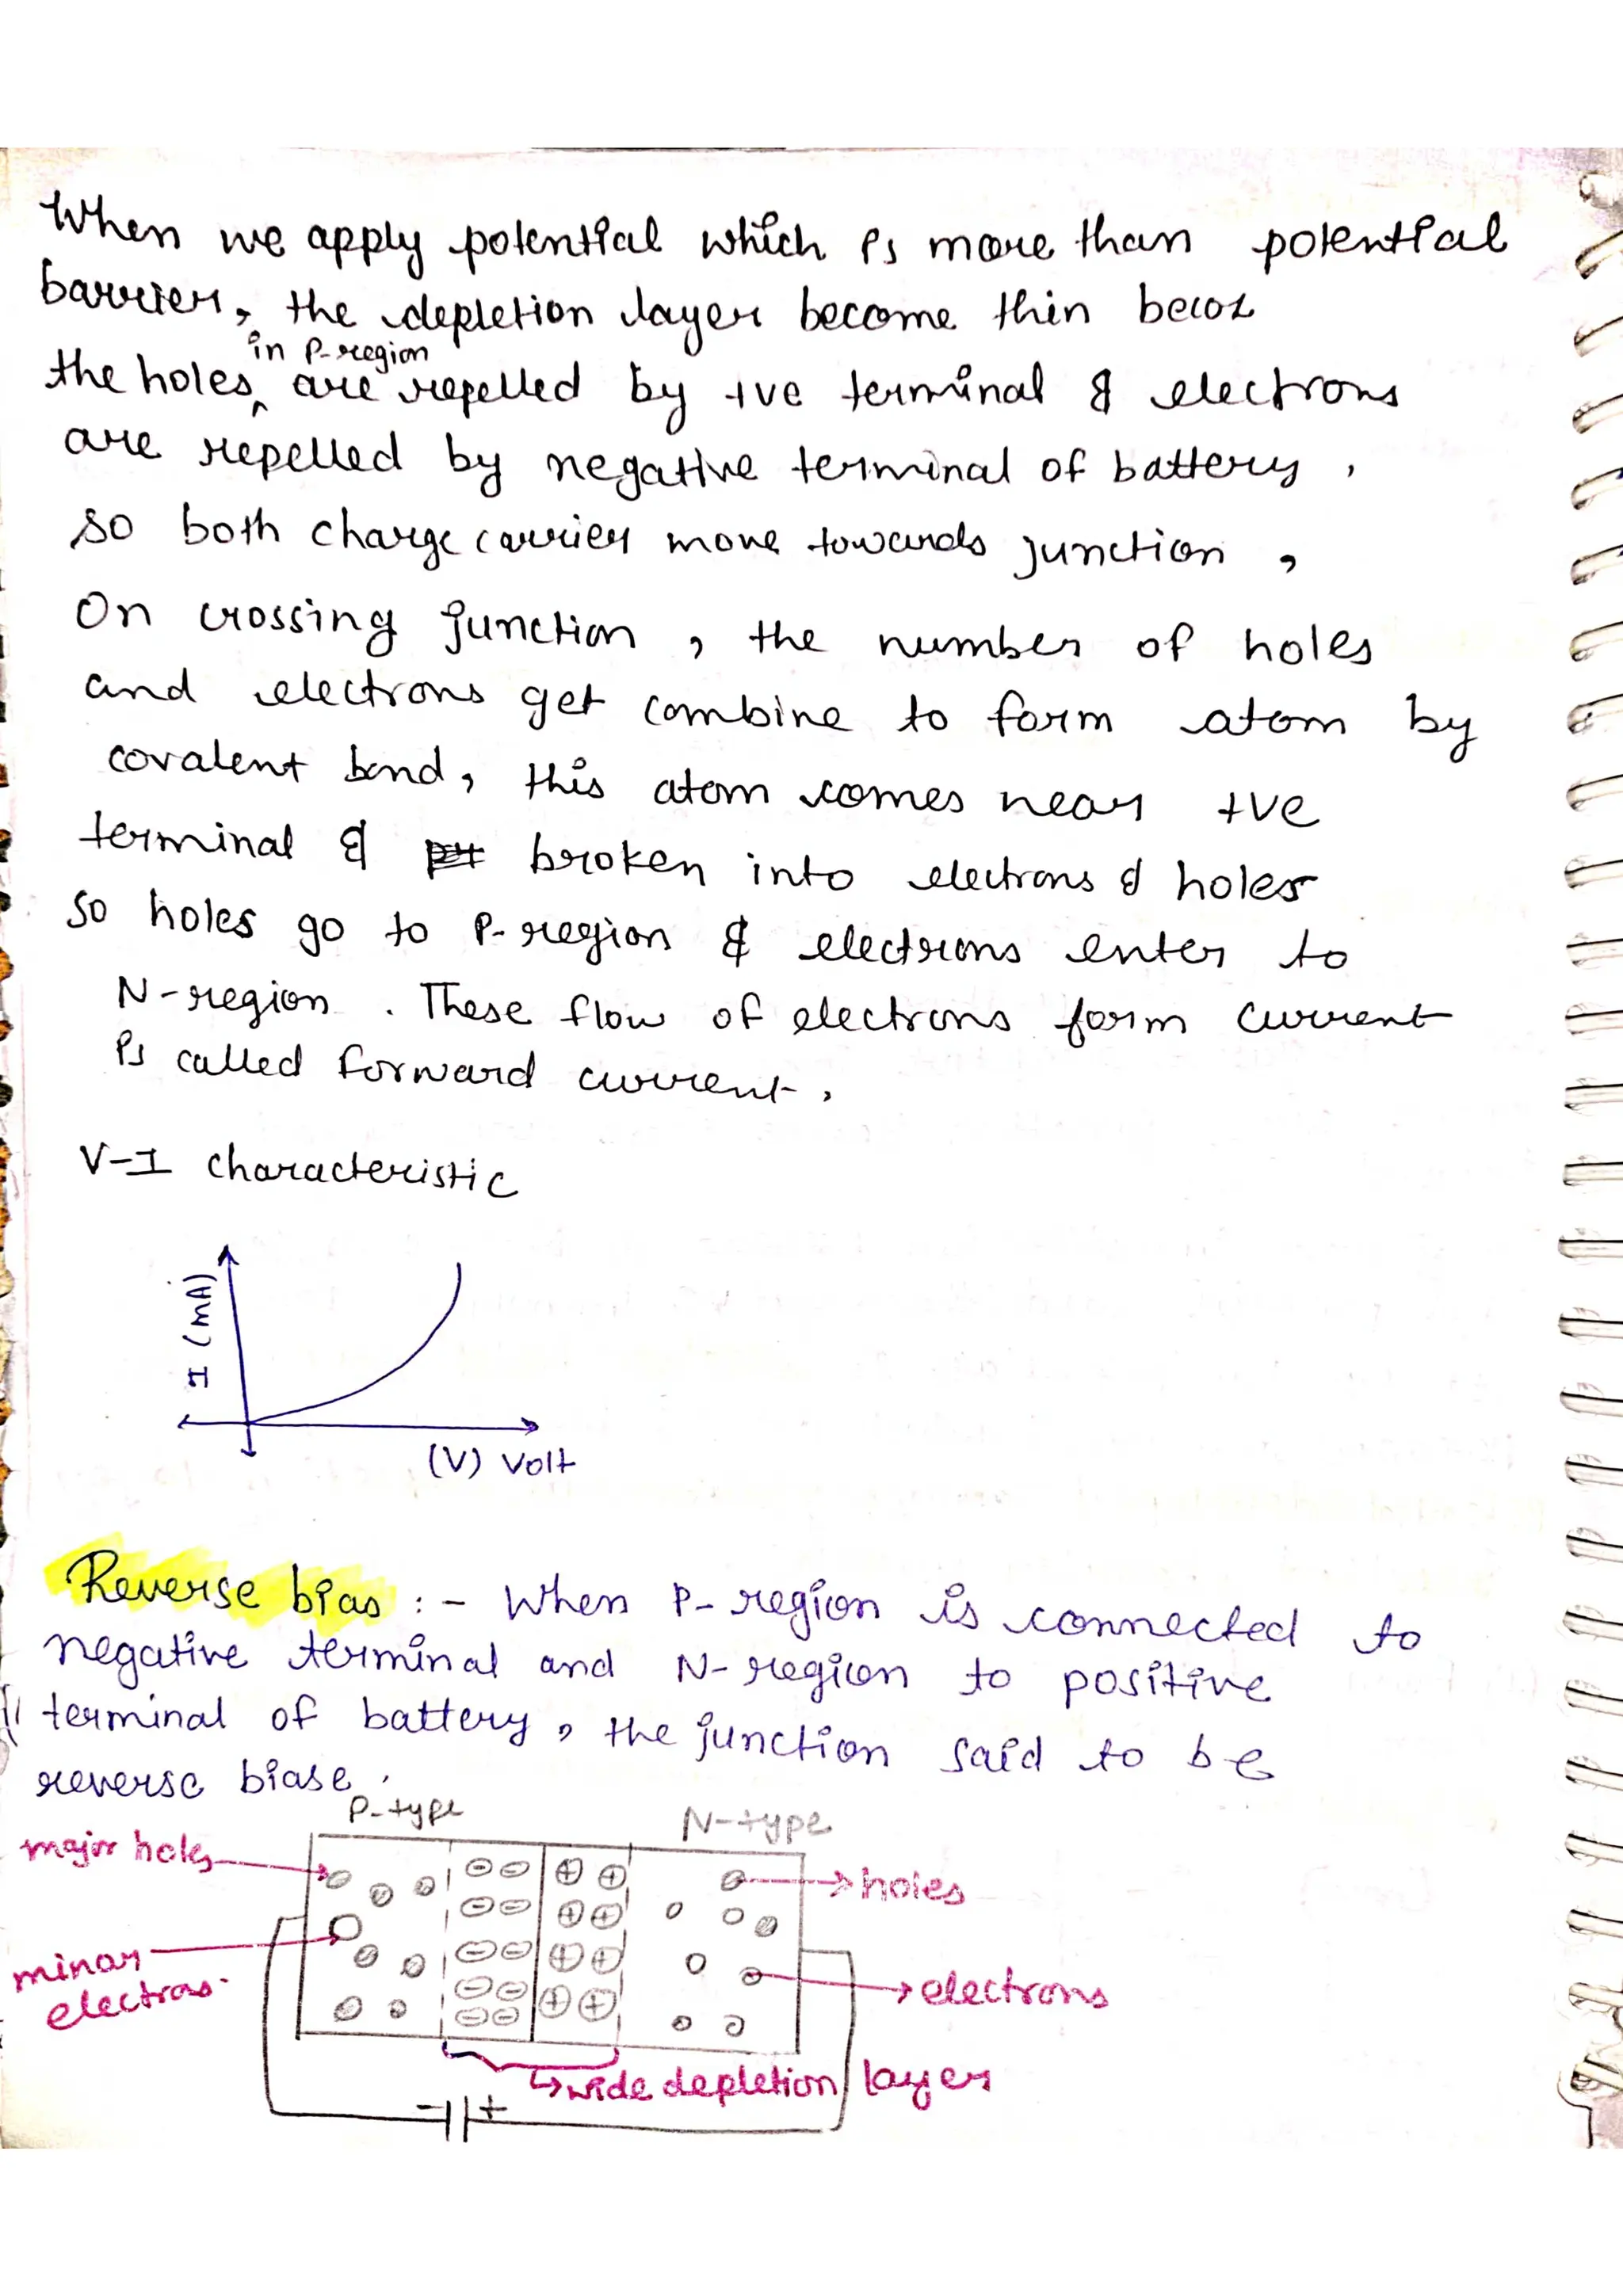 When we apply potential which is more than potential
barrier, the depletion layer become thin becoz
in P-region
the holes are repelled by +ve terminal & electrons
are repelled by negative terminal of battery,
so both charge carrier move towards junction,
On crossing junction, the number of holes
and electrons get combine to form atom by
covalent bond, this atom comes near +ve
terminal & broken into electrons & holes
so holes go to P-region & electrons enter to
N-region. These flow of electrons form current
is called forward current.
V-I characteristic
I (mA)
(V) Volt
Reverse bias :- When P-region is connected to
negative terminal and N-region to positive
terminal of battery, the junction said to be
reverse biase.
P-type
N-type
major holes
holes
minor
electros.
electrons
wide depletion layer
- +